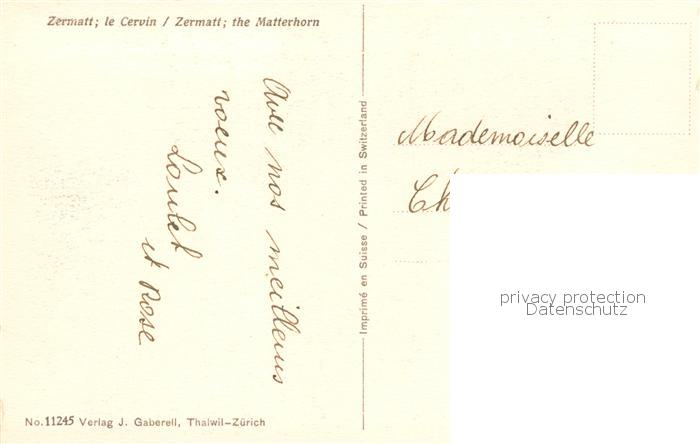 Zermatt; le Cervin / Zermatt; the Matterhorn
Avec nos meilleurs
voeux.
Loulet
et Rose
Imprimé en Suisse / Printed in Switzerland
Mademoiselle
Ch
privacy protection
Datenschutz
No. 11245 Verlag J. Gaberell, Thalwil-Zürich